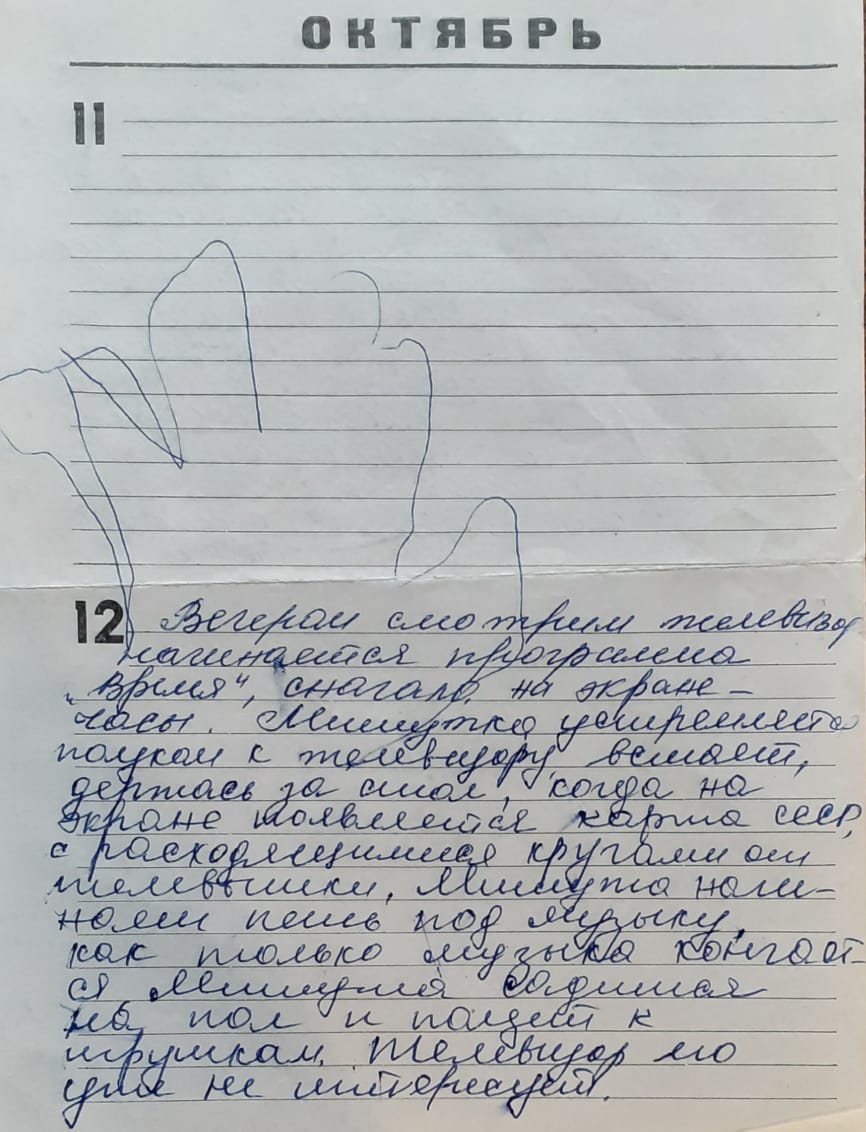 ОКТЯБРЬ
11
12 Вечером смотрим телевизор
начинается программа
„Время", сначала на экране –
часы. Мишутка устремляется
ползком к телевизору, встает,
держась за стол, когда на
экране появляется карта СССР,
с расходящимися кругами от
телевышки, Мишутка начи-
нает петь под музыку,
как только музыка кончает-
ся Мишутка садится
на пол и ползет к
игрушкам. Телевизор его
уже не интересует.